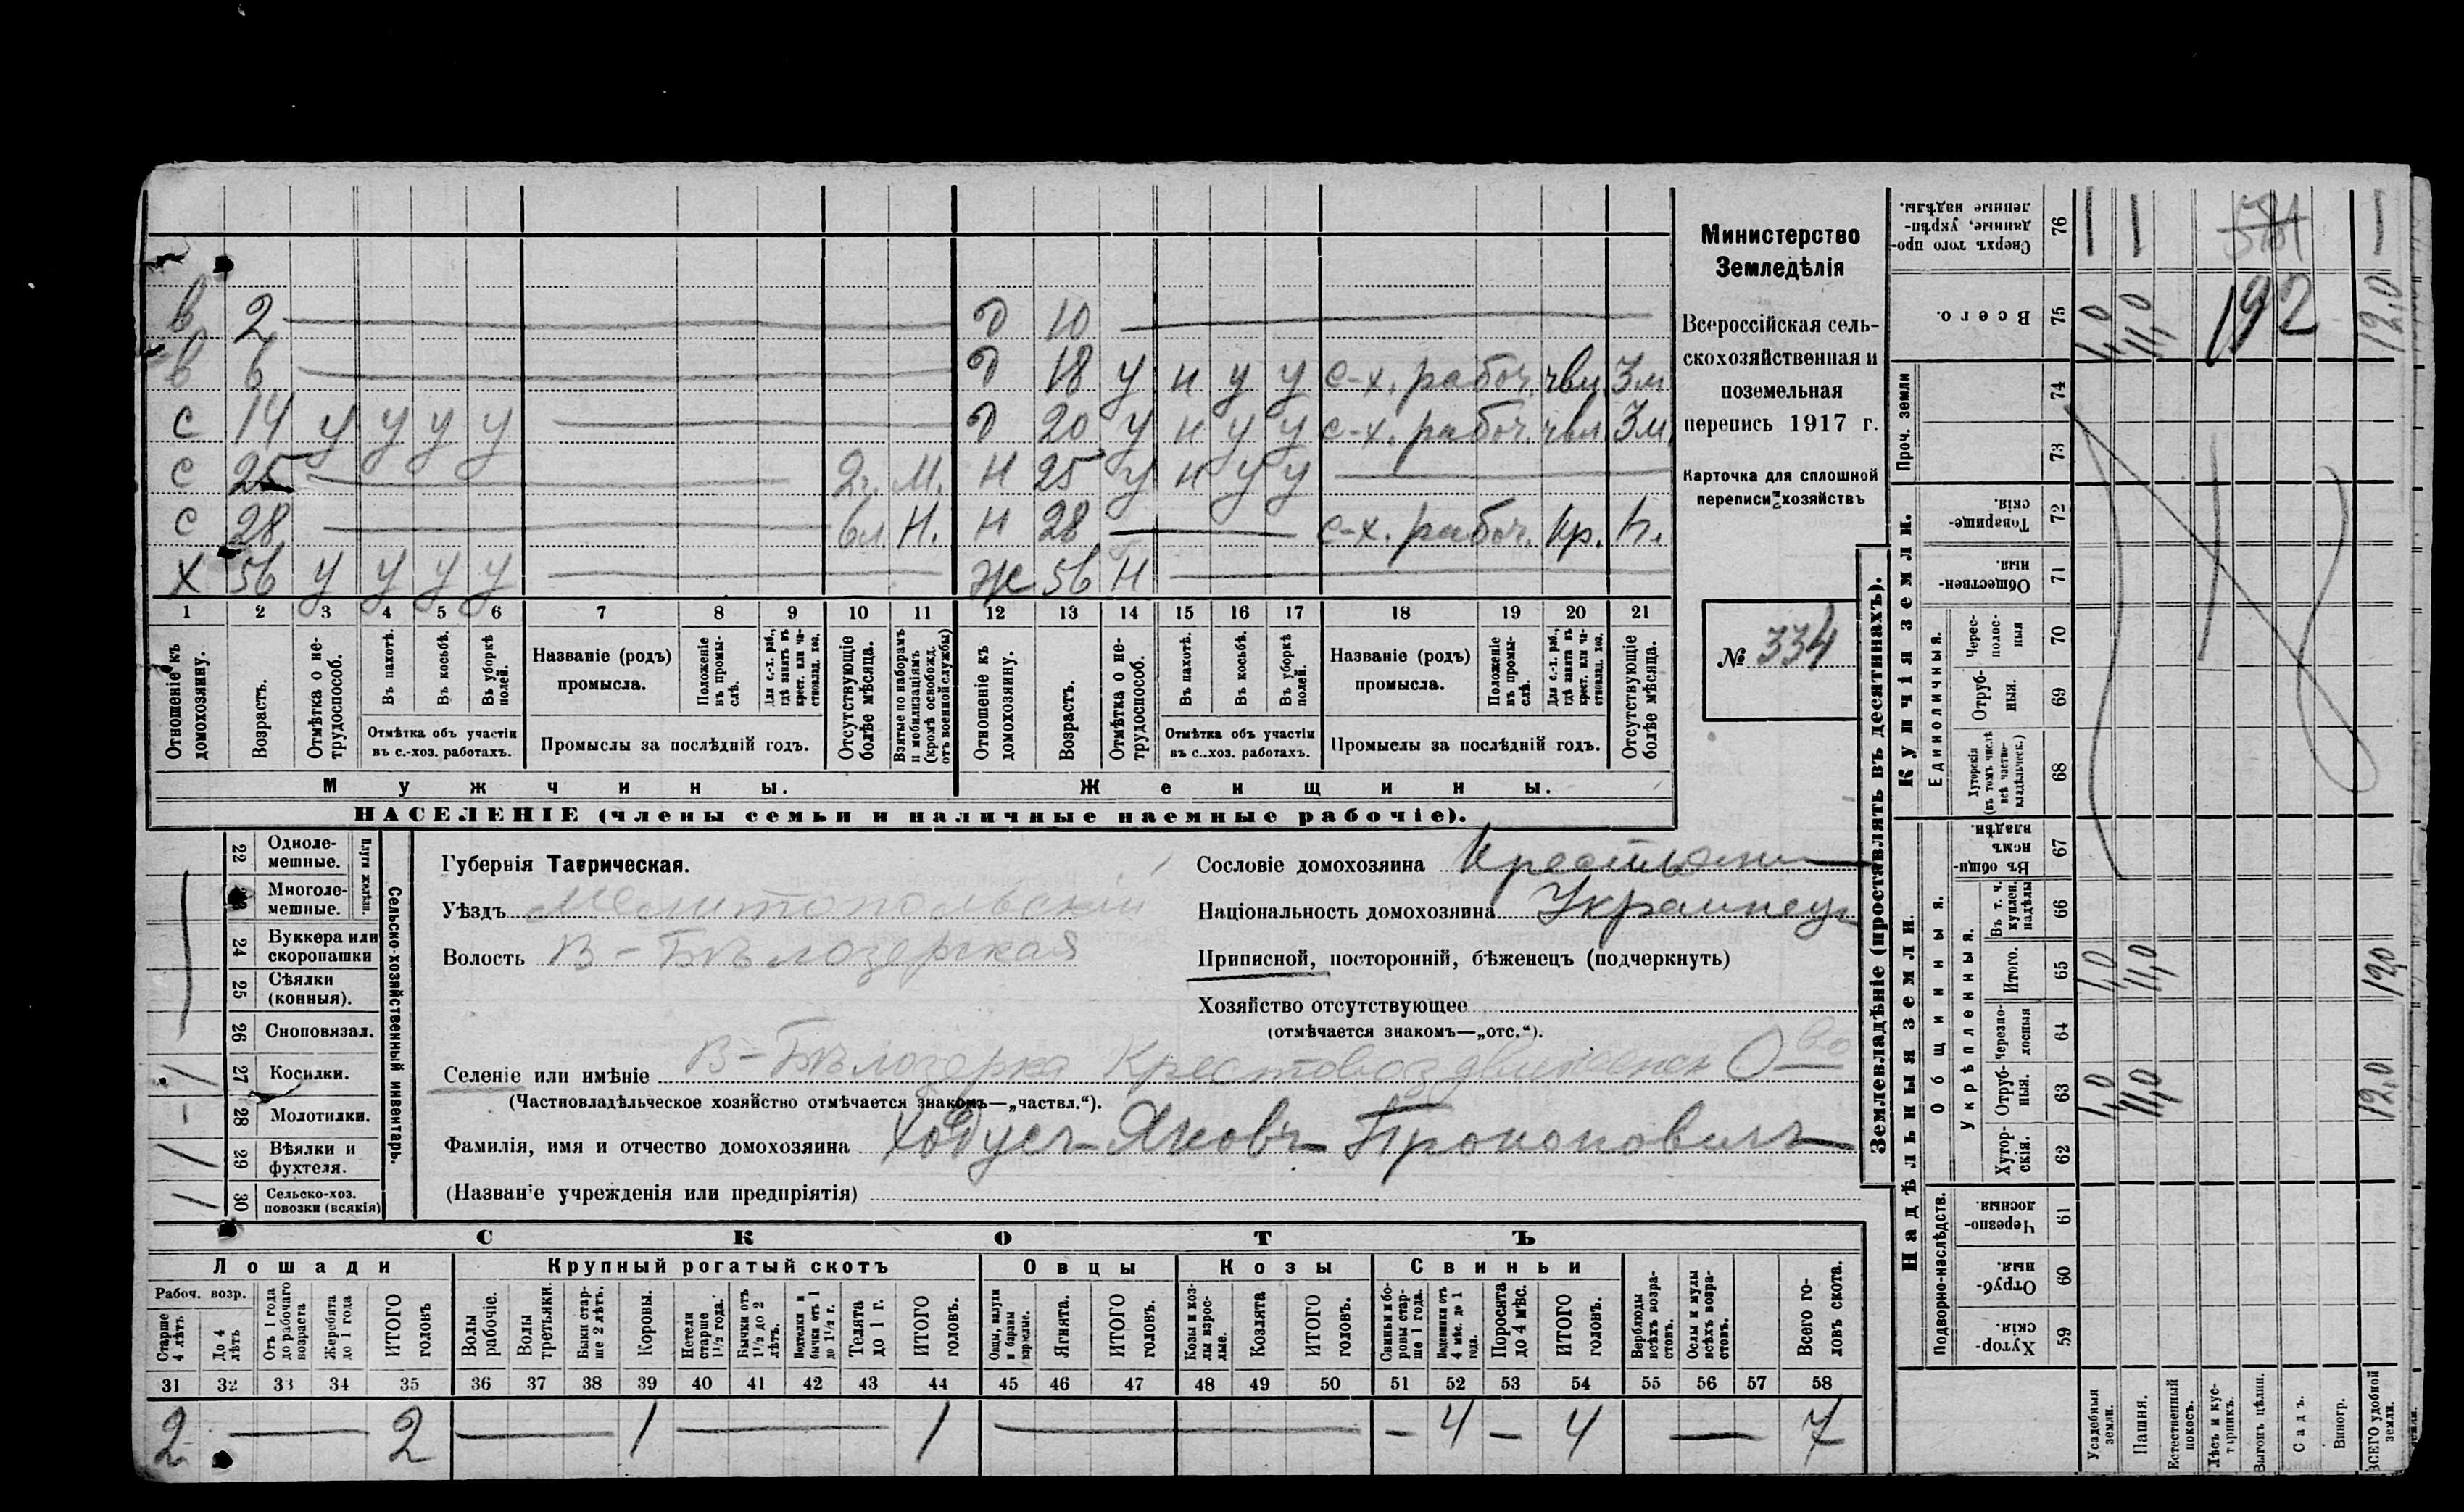 в 2 д 10
в 6 д 18 у н у у с-х. рабоч. чвл. 3м
с 14 у у у у д 20 у н у у с-х. рабоч. чвл 3м.
с 25 2г. М. Н 25 у н у у
с 28 6л. Н. Н 28 с-х. рабоч. кр.
х 56 у у у у Ж 56 Н
1 2 3 4 5 6 7 8 9 10 11 12 13 14 15 16 17 18 19 20 21
Отношеніе къ домохозяину.
Возрастъ.
Отмѣтка о не-трудоспособ.
Въ пахотѣ.
Въ косьбѣ.
Въ уборкѣ полей.
Отмѣтка объ участіи въ с.-хоз. работахъ.
Названіе (родъ) промысла.
Положеніе въ промы-слѣ.
Для с.-х. раб., гдѣ занятъ въ крест. или ча-стновлад. хоз.
Промыслы за послѣдній годъ.
Отсутствующіе болѣе мѣсяца.
Взятые по наборамъ и мобилизаціямъ (кромѣ освобожд. отъ военной службы)
Отношеніе къ домохозяину.
Возрастъ.
Отмѣтка о не-трудоспособ.
Въ пахотѣ.
Въ косьбѣ.
Въ уборкѣ полей.
Отмѣтка объ участіи въ с..хоз. работахъ.
Названіе (родъ) промысла.
Положеніе въ промы-слѣ.
Для с.-х. раб., гдѣ занята въ крест. или ча-стновлад. хоз.
Промыслы за послѣдній годъ.
Отсутствующіе болѣе мѣсяца.
Мужчины. Женщины.
НАСЕЛЕНІЕ (члены семьи и наличные наемные рабочіе).
Министерство
Земледѣлія
Всероссійская сель-
скохозяйственная и
поземельная
перепись 1917 г.
Карточка для сплошной
переписи хозяйствъ
№ 334
22 Одноле-мешные.
Многоле-мешные.
Плуги желѣзн.
24 Буккера или скоропашки
25 Сѣялки (конныя).
26 Сноповязал.
27 Косилки.
28 Молотилки.
29 Вѣялки и фухтеля.
30 Сельско-хоз. повозки (всякія)
Сельско-хозяйственный инвентарь.
Губернія Таврическая.
Уѣздъ Мелитопольскій
Волость В-Бѣлозерская
Сословіе домохозяина Крестьянин
Національность домохозяина Украинецъ
Приписной, посторонній, бѣженецъ (подчеркнуть)
Хозяйство отсутствующее
(отмѣчается знакомъ—„отс.“).
Селеніе или имѣніе В-Бѣлозерка Крестовоздвиженск О-во
(Частновладѣльческое хозяйство отмѣчается знакомъ—„частвл.“).
Фамилія, имя и отчество домохозяина Ходусъ Яковъ Прокоповичъ
(Названіе учрежденія или предпріятія)
СКОТЪ
Лошади Крупный рогатый скотъ Овцы Козы Свиньи
Рабоч. возр.
Старше 4 лѣтъ
До 4 лѣтъ
Отъ 1 года до рабочаго возраста
Жеребята до 1 года
ИТОГО головъ
Волы рабочіе.
Волы третьяки.
Быки стар-ше 2 лѣтъ.
Коровы.
Нетели старше 1½ года.
Бычки отъ 1½ до 2 лѣтъ.
Подтелки и бычки отъ 1 до 1½ г.
Телята до 1 г.
ИТОГО головъ.
Овцы, валухи и бараны взрослые.
Ягнята.
ИТОГО головъ.
Козы и коз-лы взрос-лые.
Козлята
ИТОГО головъ.
Свиньи и бо-ровы стар-ше 1 года.
Подсвинки отъ 4 мѣс. до 1 года.
Поросята до 4 мѣс.
ИТОГО головъ.
Верблюды всѣхъ возра-стовъ.
Ослы и мулы всѣхъ возра-стовъ.
Всего го-ловъ скота.
31 32 33 34 35 36 37 38 39 40 41 42 43 44 45 46 47 48 49 50 51 52 53 54 55 56 57 58
2 — 2 — 1 — 1 — — 4 — 4 — 7
Землевладѣніе (проставлять въ десятинахъ).
Надѣльныя земли.
Подворно-наслѣдств.
Хутор-скія. 59
Отруб-ныя. 60
Черезпо-лосныя. 61
Общинныя.
Укрѣпленныя.
Хутор-скія. 62
Отруб-ныя. 63 1,0 11,0 12,0
Черезпо-лосныя 64
Итого. 65 1,0 11,0 12,0
Въ т. ч. куплен. надѣлы 66
Въ общин-номъ владѣн. 67
Купчія земли.
Единоличныя.
Хуторскія (въ томъ числѣ всѣ частно-владѣльческ.) 68
Отруб-ныя. 69
Черес-полос-ныя 70
Обществен-ныя. 71
Товарище-скія. 72
Проч. земли
73
74
Всего. 75 1,0 11,0 192 12,0
Сверхъ того про-данные, укрѣп-ленные надѣлы. 76
Усадебныя земли.
Пашня.
Естественный покосъ.
Лѣсъ и кус-тарникъ.
Выгонъ цѣлин.
Садъ.
Виногр.
ВСЕГО удобной земли.